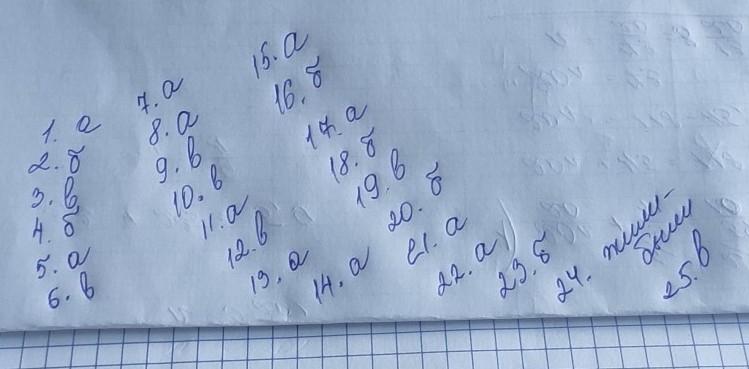 1. а
2. б
3. в
4. б
5. а
6. в
7. а
8. а
9. в
10. в
11. а
12. в
13. а
14. а
15. а
16. б
17. а
18. б
19. в
20. б
21. а
22. а
23. б
24.
25. в